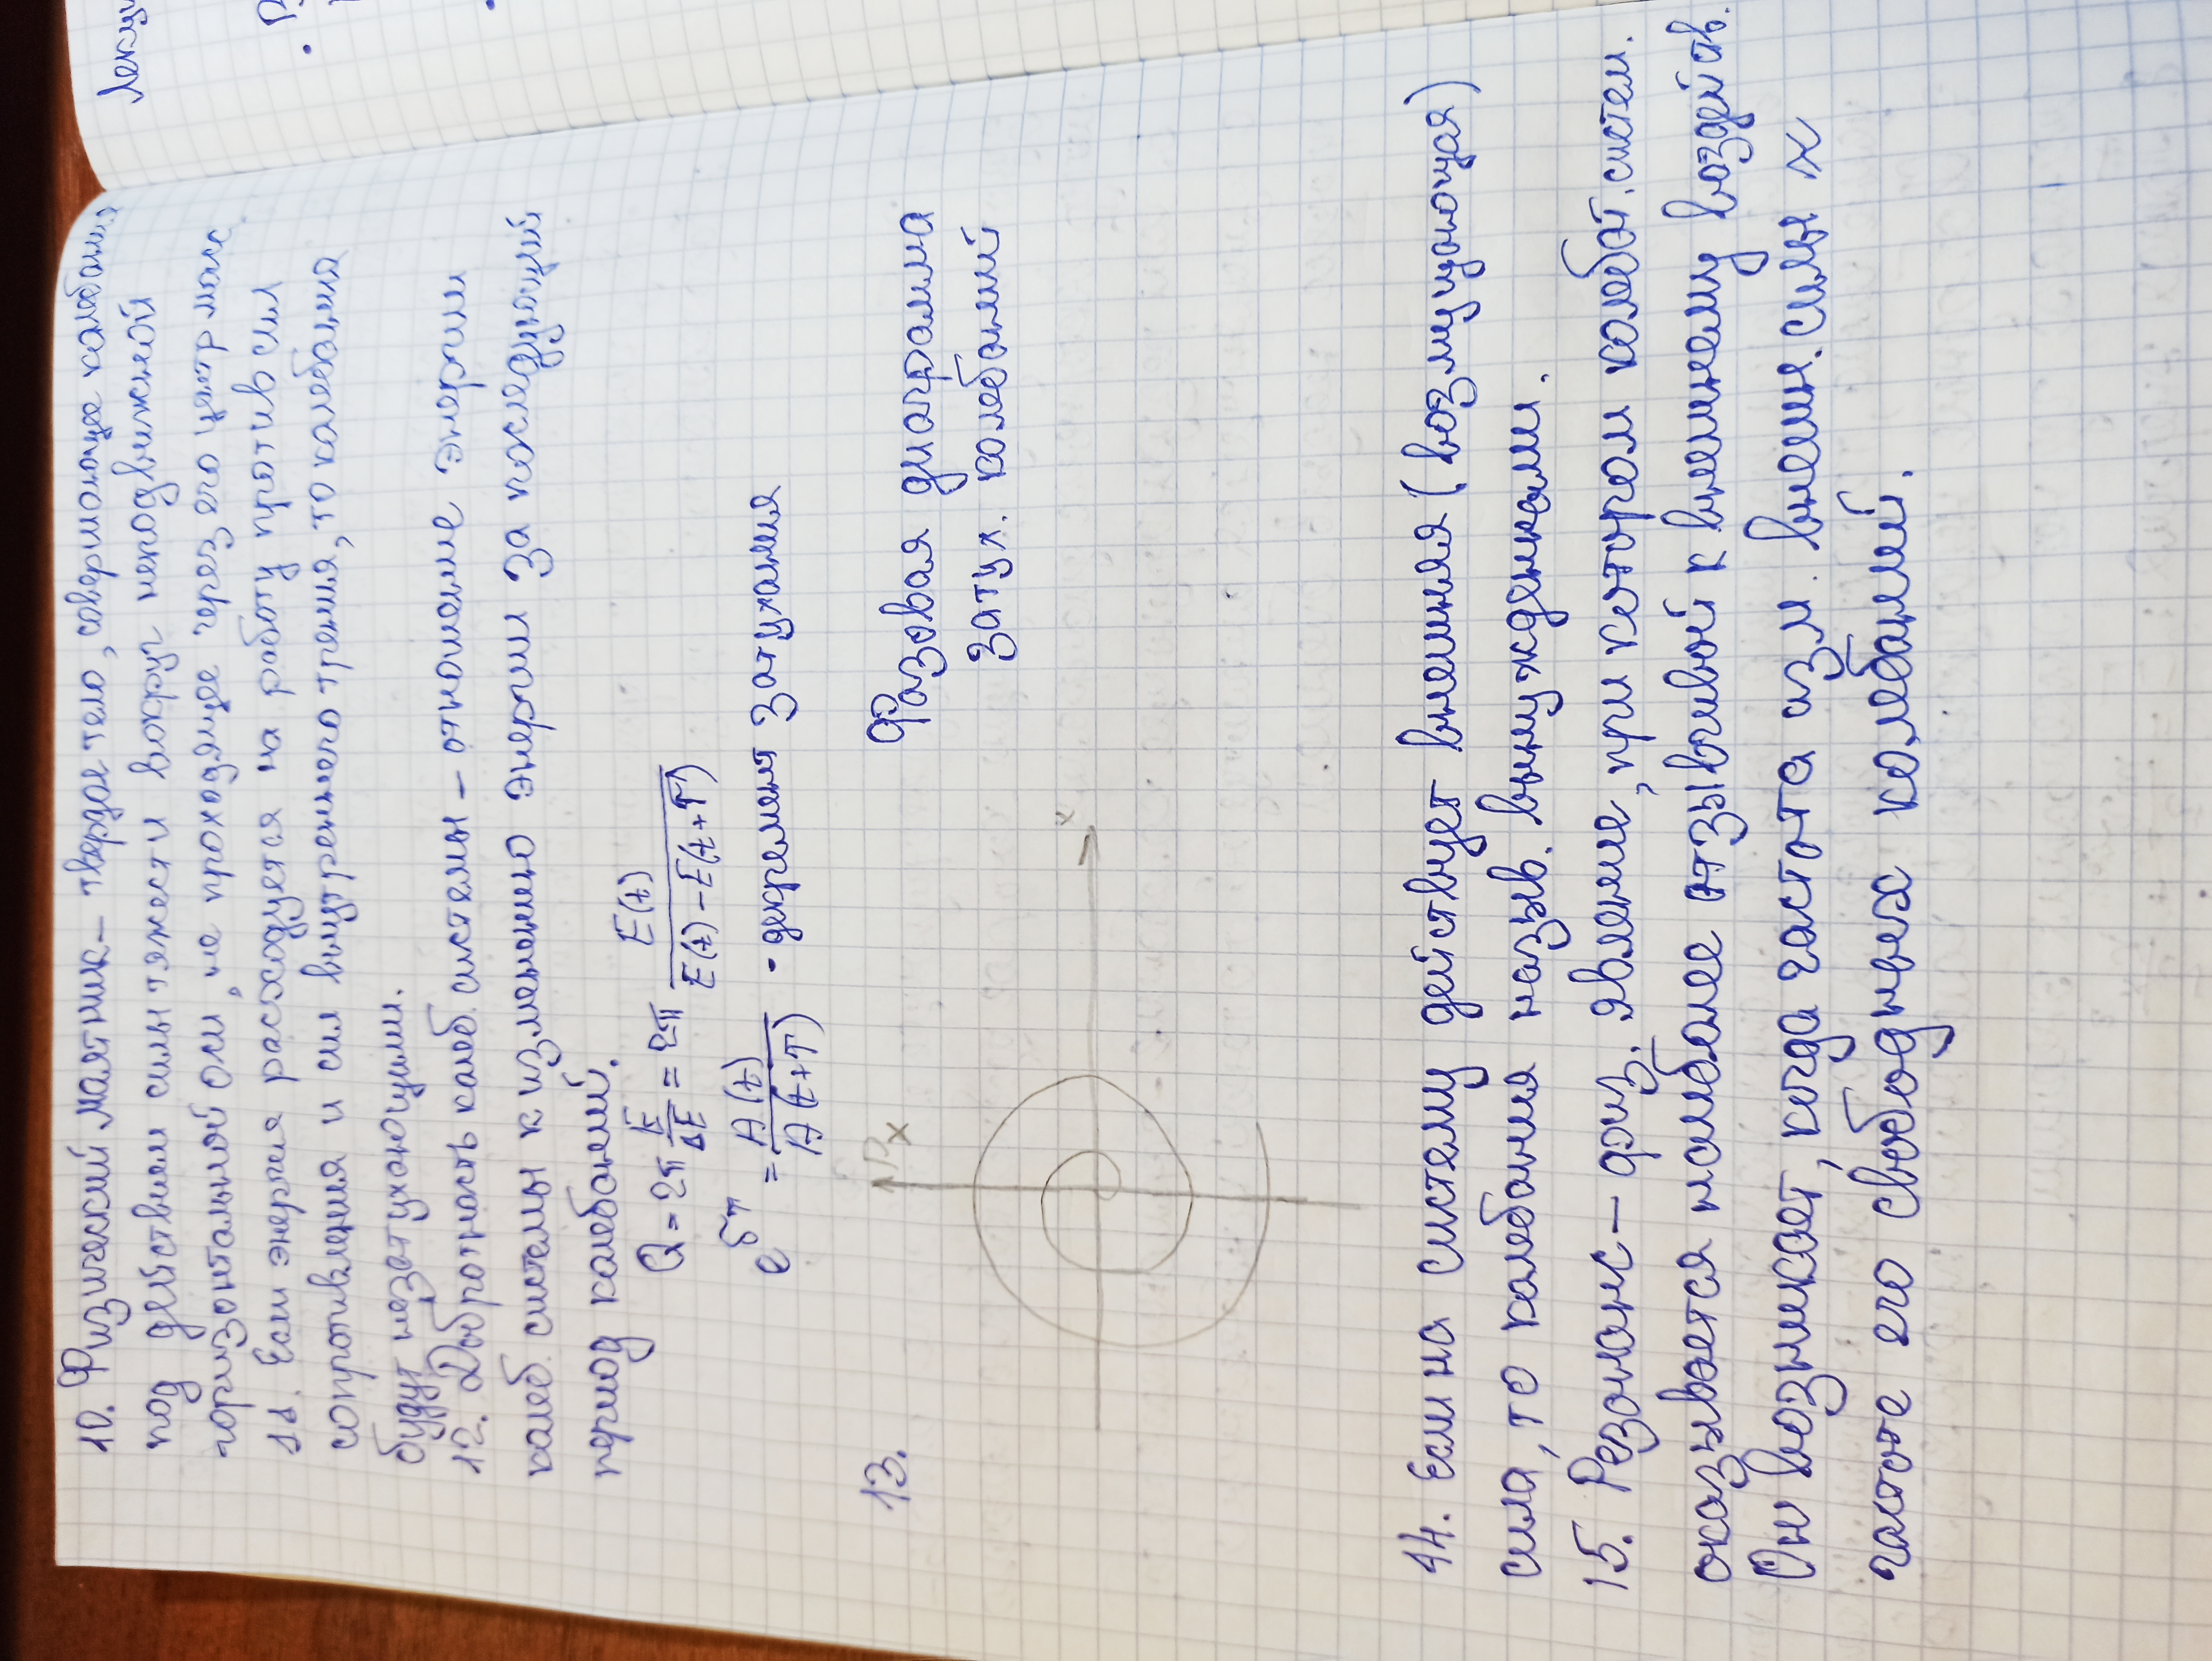 10. Физический маятник – твердое тело, совершающее колебания
под действием силы тяжести вокруг неподвижной
горизонтальной оси, не проходящее через его центр масс
11. Если энергия расходуется на работу против сил
сопротивления и сил внутреннего трения, то колебания
будут незатухающими.
12. Добротность колеб. системы – отношение энергии
колеб. системы к изменению энергии за последующий
период колебаний.
Q = 2π E/ΔE = 2π E(t)/(E(t) – E(t+T))
e^δT = A(t)/A(t+T) - декремент затухания
13.
Px
Фазовая диаграмма
затух. колебаний
x
14. Если на систему действует внешняя (возмущающая)
сила, то колебания назыв. вынужденными.
15. Резонанс – физ. явление, при котором колебат. систем.
оказывается наиболее отзывчивой к внешнему воздейств.
Он возникает, когда частота изм. внешн. силы
частоте его свободных колебаний.
Лекци